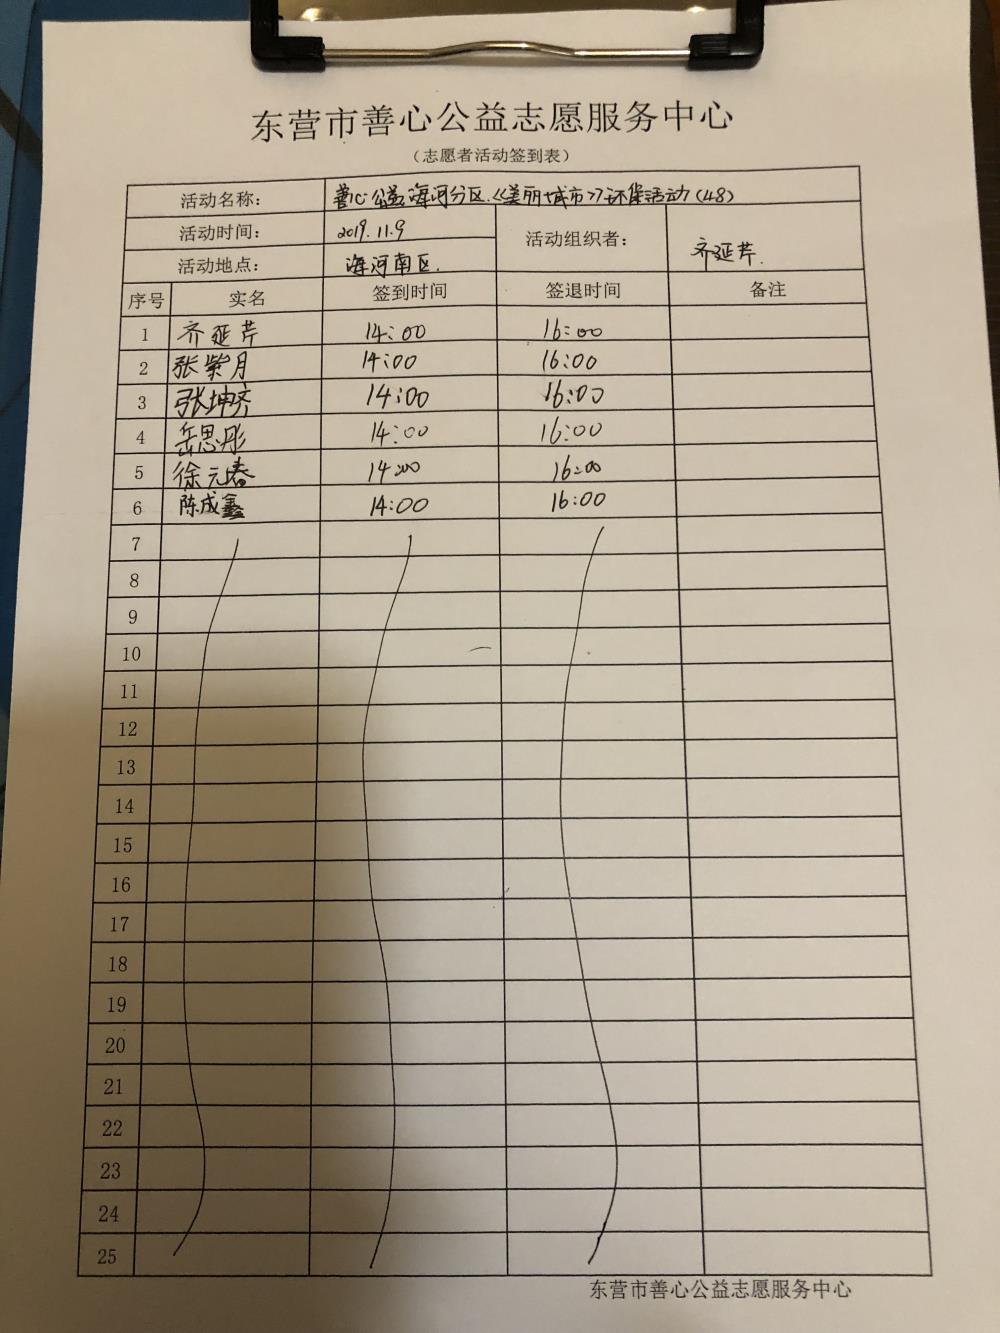 东营市善心公益志愿服务中心
（志愿者活动签到表）
活动名称： 善心公益海河分区《美丽城市》环保活动（48）
活动时间： 2019.11.9 活动组织者： 齐延芹.
活动地点： 海河南区.
序号 实名 签到时间 签退时间 备注
1 齐延芹 14:00 16:00
2 张紫月 14:00 16:00
3 张坤齐 14:00 16:00
4 岳思彤 14:00 16:00
5 徐元春 14:00 16:00
6 陈成鑫 14:00 16:00
7
8
9
10
11
12
13
14
15
16
17
18
19
20
21
22
23
24
25
东营市善心公益志愿服务中心